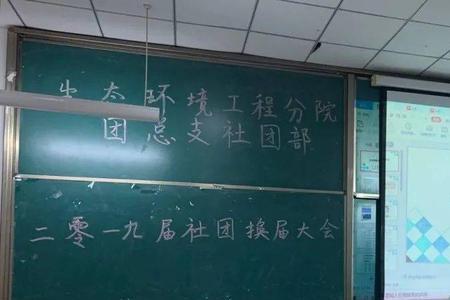 生态环境工程分院
团总支社团部
二零一九届社团换届大会